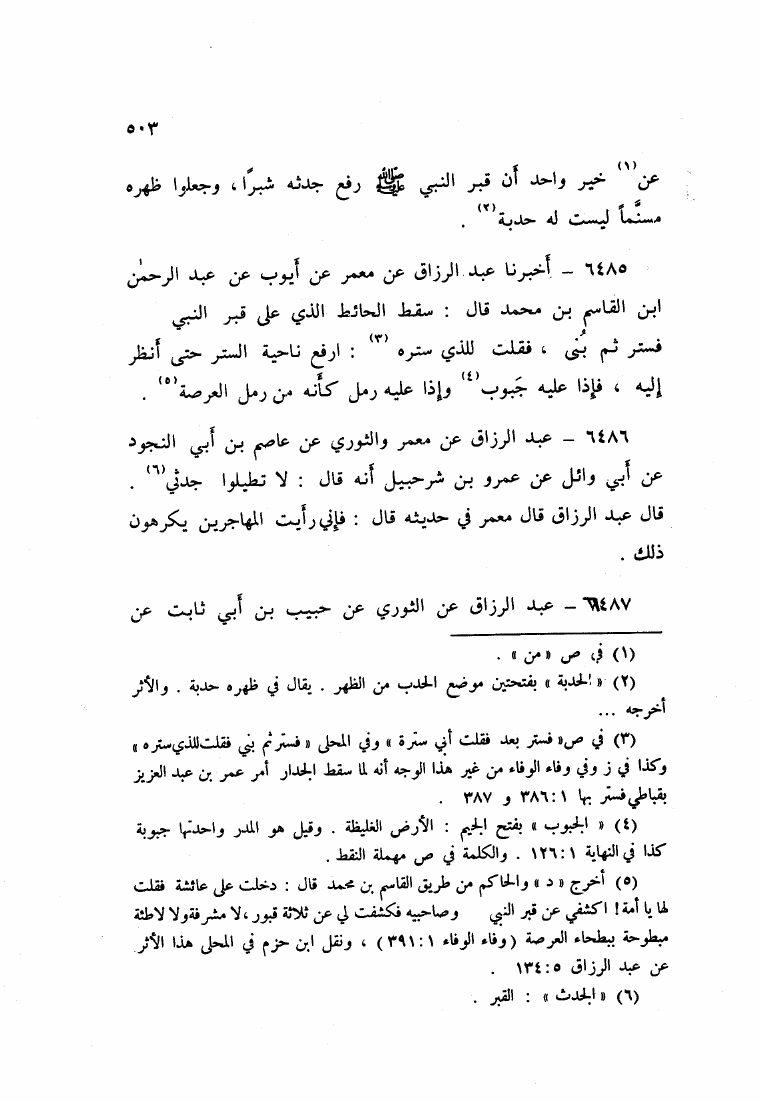 ٥٠٣
عن(١) خير واحد أن قبر النبي ﷺ رفع جدثه شبرًا، وجعلوا ظهره
مسنَّماً ليست له حدبة(٢) .
٦٤٨٥ – أخبرنا عبد الرزاق عن معمر عن أيوب عن عبد الرحمٰن
ابن القاسم بن محمد قال : سقط الحائط الذي على قبر النبي
فستر ثم بُنى ، فقلت للذي ستره (٣) : ارفع ناحية الستر حتى أنظر
إليه ، فإذا عليه جَبوب(٤) وإذا عليه رمل كأنه من رمل العرصة(٥) .
٦٤٨٦ – عبد الرزاق عن معمر والثوري عن عاصم بن أبي النجود
عن أبي وائل عن عمرو بن شرحبيل أنه قال : لا تطيلوا جدثي(٦) .
قال عبد الرزاق قال معمر في حديثه قال : فإني رأيت المهاجرين يكرهون
ذلك .
٦٤٨٧ – عبد الرزاق عن الثوري عن حبيب بن أبي ثابت عن
(١) في ص «من» .
(٢) «الحدبة» بفتحتين موضع الحدب من الظهر . يقال في ظهره حدبة . والأثر
أخرجه ...
(٣) في ص «فستر بعد فقلت أني سترة» وفي المحلى «فستر ثم بني فقلت للذي ستره»
وكذا في ز وفي وفاء الوفاء من غير هذا الوجه أنه لما سقط الجدار أمر عمر بن عبد العزيز
بقباطي فستّر بها ١:٣٨٦ و ٣٨٧ .
(٤) «الجبوب» بفتح الجيم : الأرض الغليظة . وقيل هو المدر واحدتها جبوبة
كذا في النهاية ١:١٢٦ . والكلمة في ص مهملة النقط .
(٥) أخرج «د» والحاكم من طريق القاسم بن محمد قال : دخلت على عائشة فقلت
لها يا أمة! اكشفي عن قبر النبي وصاحبيه فكشفت لي عن ثلاثة قبور، لا مشرفة ولا لاطئة
مبطوحة ببطحاء العرصة (وفاء الوفاء ١:٣٩١) ، ونقل ابن حزم في المحلى هذا الأثر
عن عبد الرزاق ٥:١٣٤ .
(٦) «الجدث» : القبر .